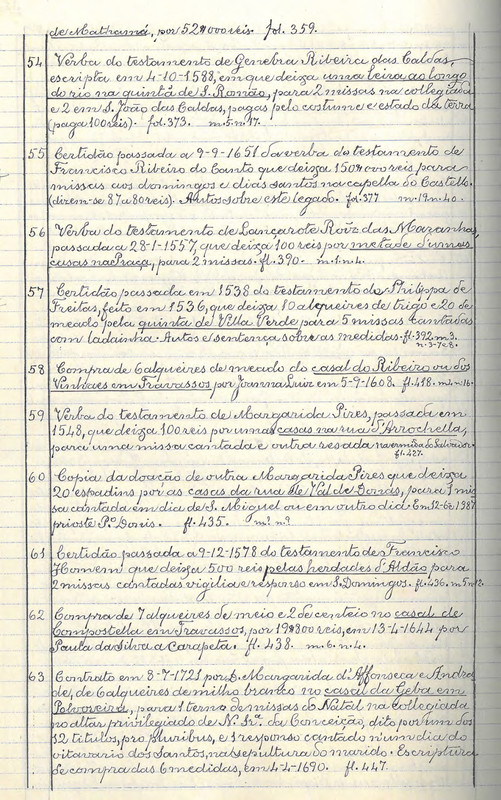 de Mathamá, por 52$000 reis. fol. 359.
54 Verba do testamento de Genebra Ribeira das Caldas,
escripta em 4-10-1588, em que deixa uma leira ao longo
do rio na quintã de S. Romão, para 2 missas na collegiada
e 2 em S. João das Caldas, pagas pelo costume e estado da terra
(paga 100 reis). fol. 373. m. 5 n. 17.
55 Certidão passada a 9-9-1651 da verba do testamento de
Francisco Ribeiro do Canto que deixa 150$000 reis para
missas aos domingos e dias santos na capella do Castello.
(dizem-se 87 a 80 reis). Autos sobre este legado. fl. 377 m. 19 n. 40.
56 Verba do testamento de Lançarote Roiz das Mazanhas,
passada a 28-1-1557, que deixa 100 reis por metade d'umas
casas na Praça, para 2 missas. fl. 390. m. 1 n. 4.
57 Certidão passada em 1538 do testamento de Philippa de
Freitas, feito em 1536, que deixa 10 alqueires de trigo e 20 de
meado pela quintã de Villa Verde para 5 missas cantadas
com ladainha. Autos e sentença sobre as medidas. fl. 392. m. 3.
n. 3-7 e 8.
58 Compra de 6 alqueires de meado do casal do Ribeiro ou dos
Vinhaes em Travassos por Joanna Luiz em 5-9-1608. fl. 418. m. 4 n. 16.
59 Verba do testamento de Margarida Pires, passada em
1548, que deixa 100 reis por umas casas na rua d'Arrochella,
para uma missa cantada e outra resada na ermida do Salvador.
fl. 427.
60 Copia da doação de outra Margarida Pires que deixa
20 espadins por as casas da rua de Val de Donas, para 1 mis
sa cantada em dia de S. Miguel ou em outro dia. Em 12-6-
prioste P.º Donis. fl. 435. m.? n.?
61 Certidão passada a 9-12-1578 do testamento de Francisco
Homem que deixa 500 reis pelas herdades d'Aldão para
2 missas cantadas vigilia e responso em S. Domingos. fl. 436. m. 5 n. 12.
62 Compra de 7 alqueires de meio e 2 de centeio no casal de
Compostella em Travassos, por 19$800 reis, em 13-4-1644 por
Paula da Silva a Carapeta. fl. 438. m. 6 n. 4.
63 Contrato em 8-7-1721 por D. Margarida d'Affonseca e Andra
de, de 6 alqueires de milho branco no casal da Geba em
Polvoreira, para 1 terno de missas do Natal na Collegiada
no altar privilegiado de N. Sr.ª da Conceição, dito por um dos
12 titulos, pro pluribus, e 1 responso cantado n'um dia do
oitavario dos Santos, na sepultura do marido. Escriptura
de compra das 6 medidas, em 4-4-1690. fl. 447.